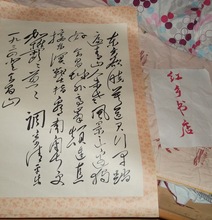 东方欲晓莫道君行早踏
遍青山人未老风景这边独
好会昌城外高峰颠连直
接东溟战士指看南粤更
加郁郁葱葱 调寄清平乐
书店